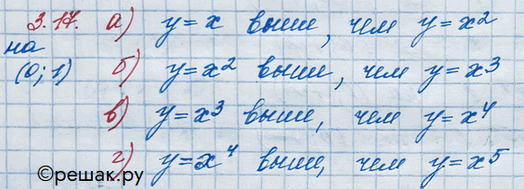 3.17. а) y = x выше, чем y = x2
на
(0; 1) б) y = x2 выше, чем y = x3
в) y = x3 выше, чем y = x4
г) y = x4 выше, чем y = x5
©решак.ру